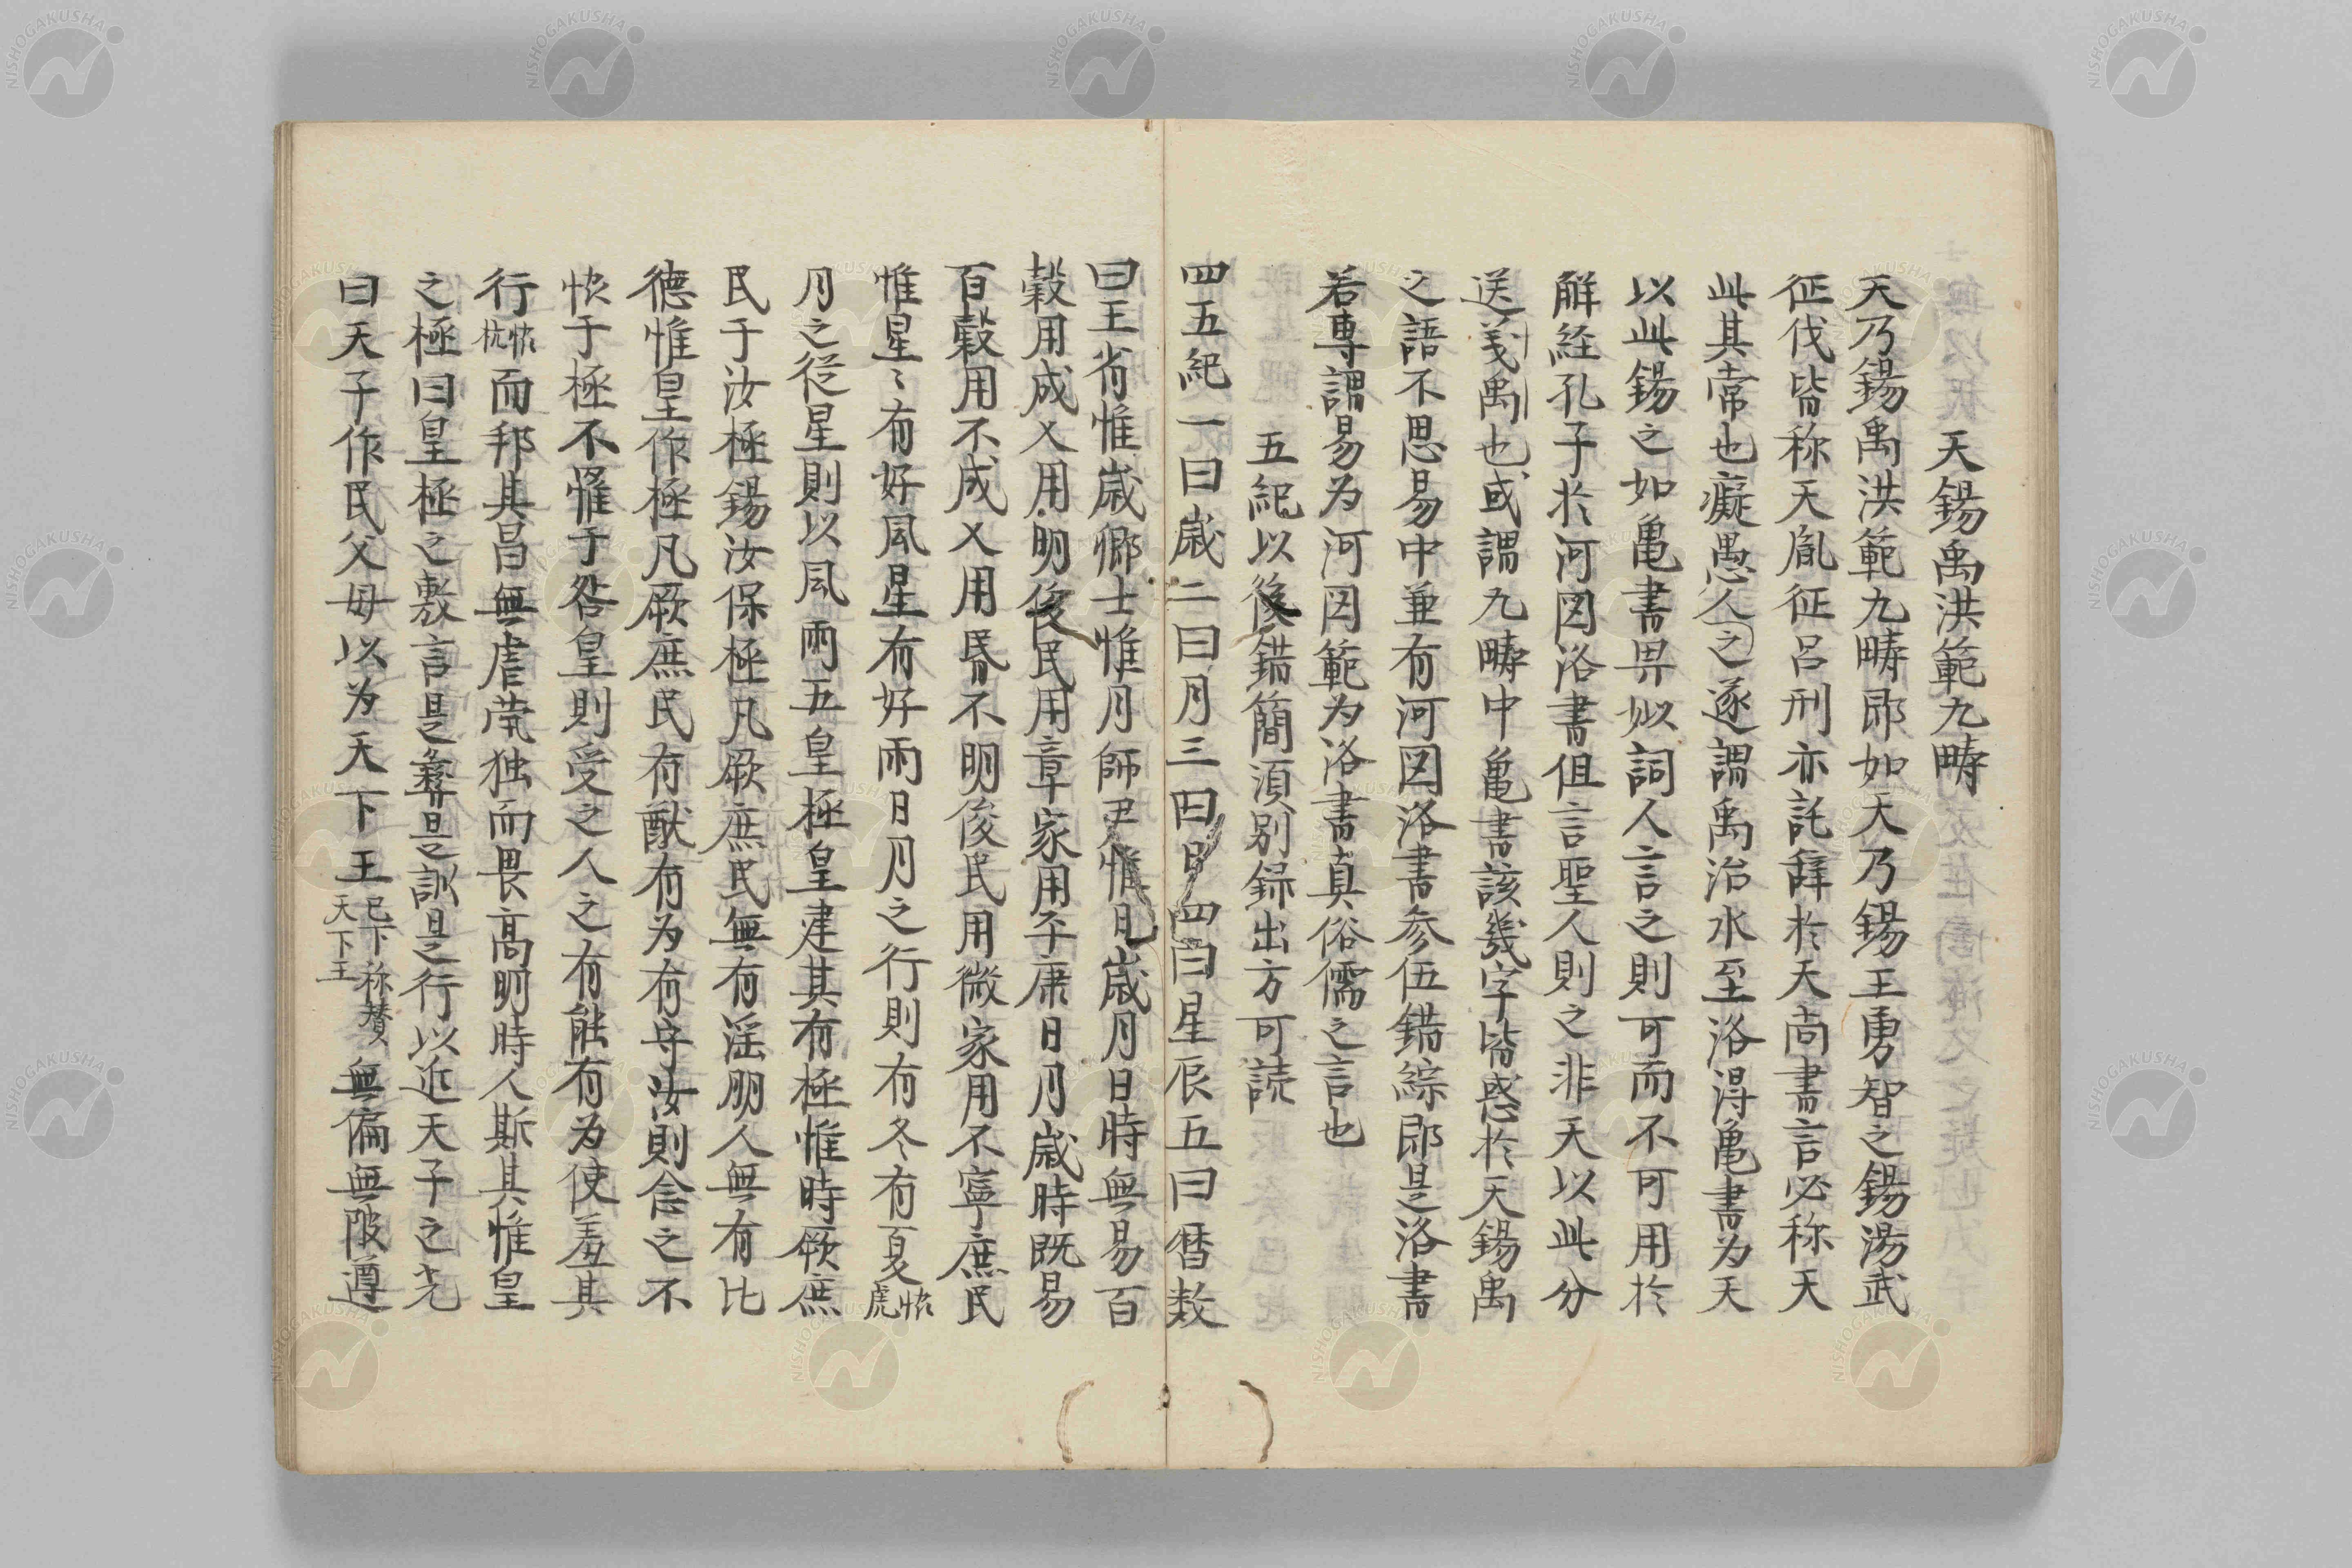 天錫禹洪範九疇
天乃錫禹洪範九疇即如天乃錫王勇智之錫湯武
征伐皆称天胤征呂刑亦託辞於天尚書言必称天
此其常也癡愚人之遂謂禹治水至洛得亀書為天
以此錫之如亀書畀姒詞人言之則可而不可用於
解経孔子於河図洛書但言聖人則之非天以此分
送羲禹也或謂九疇中亀書該幾字皆惑於天錫禹
之語不思易中兼有河図洛書参伍錯綜即是洛書
若専謂易为河図範为洛書真俗儒之言也
五紀以後錯簡須別録出方可読
四五紀一曰歳二曰月三曰日四曰星辰五曰暦数
曰王省惟歳卿士惟月師尹惟日歳月日時無易百
穀用成乂用明俊民用章家用平康日月歳時既易
百穀用不成乂用昏不明俊民用微家用不寧庶民
惟星〻有好風星有好雨日月之行則有冬有夏恊虎
月之従星則以風雨五皇極皇建其有極惟時厥庶
民于汝極錫汝保極凡厥庶民無有淫朋人無有比
徳惟皇作極凡厥庶民有猷有为有守汝則念之不
恊于極不罹于咎皇則受之人之有能有为使羞其
行恊杭而邦其昌無虐煢独而畏高明時人斯其惟皇
之極曰皇極之敷言是彝是訓是行以近天子之光
曰天子作民父母以为天下王已下称賛天下王無偏無陂遵
NISHOGAKUSHA